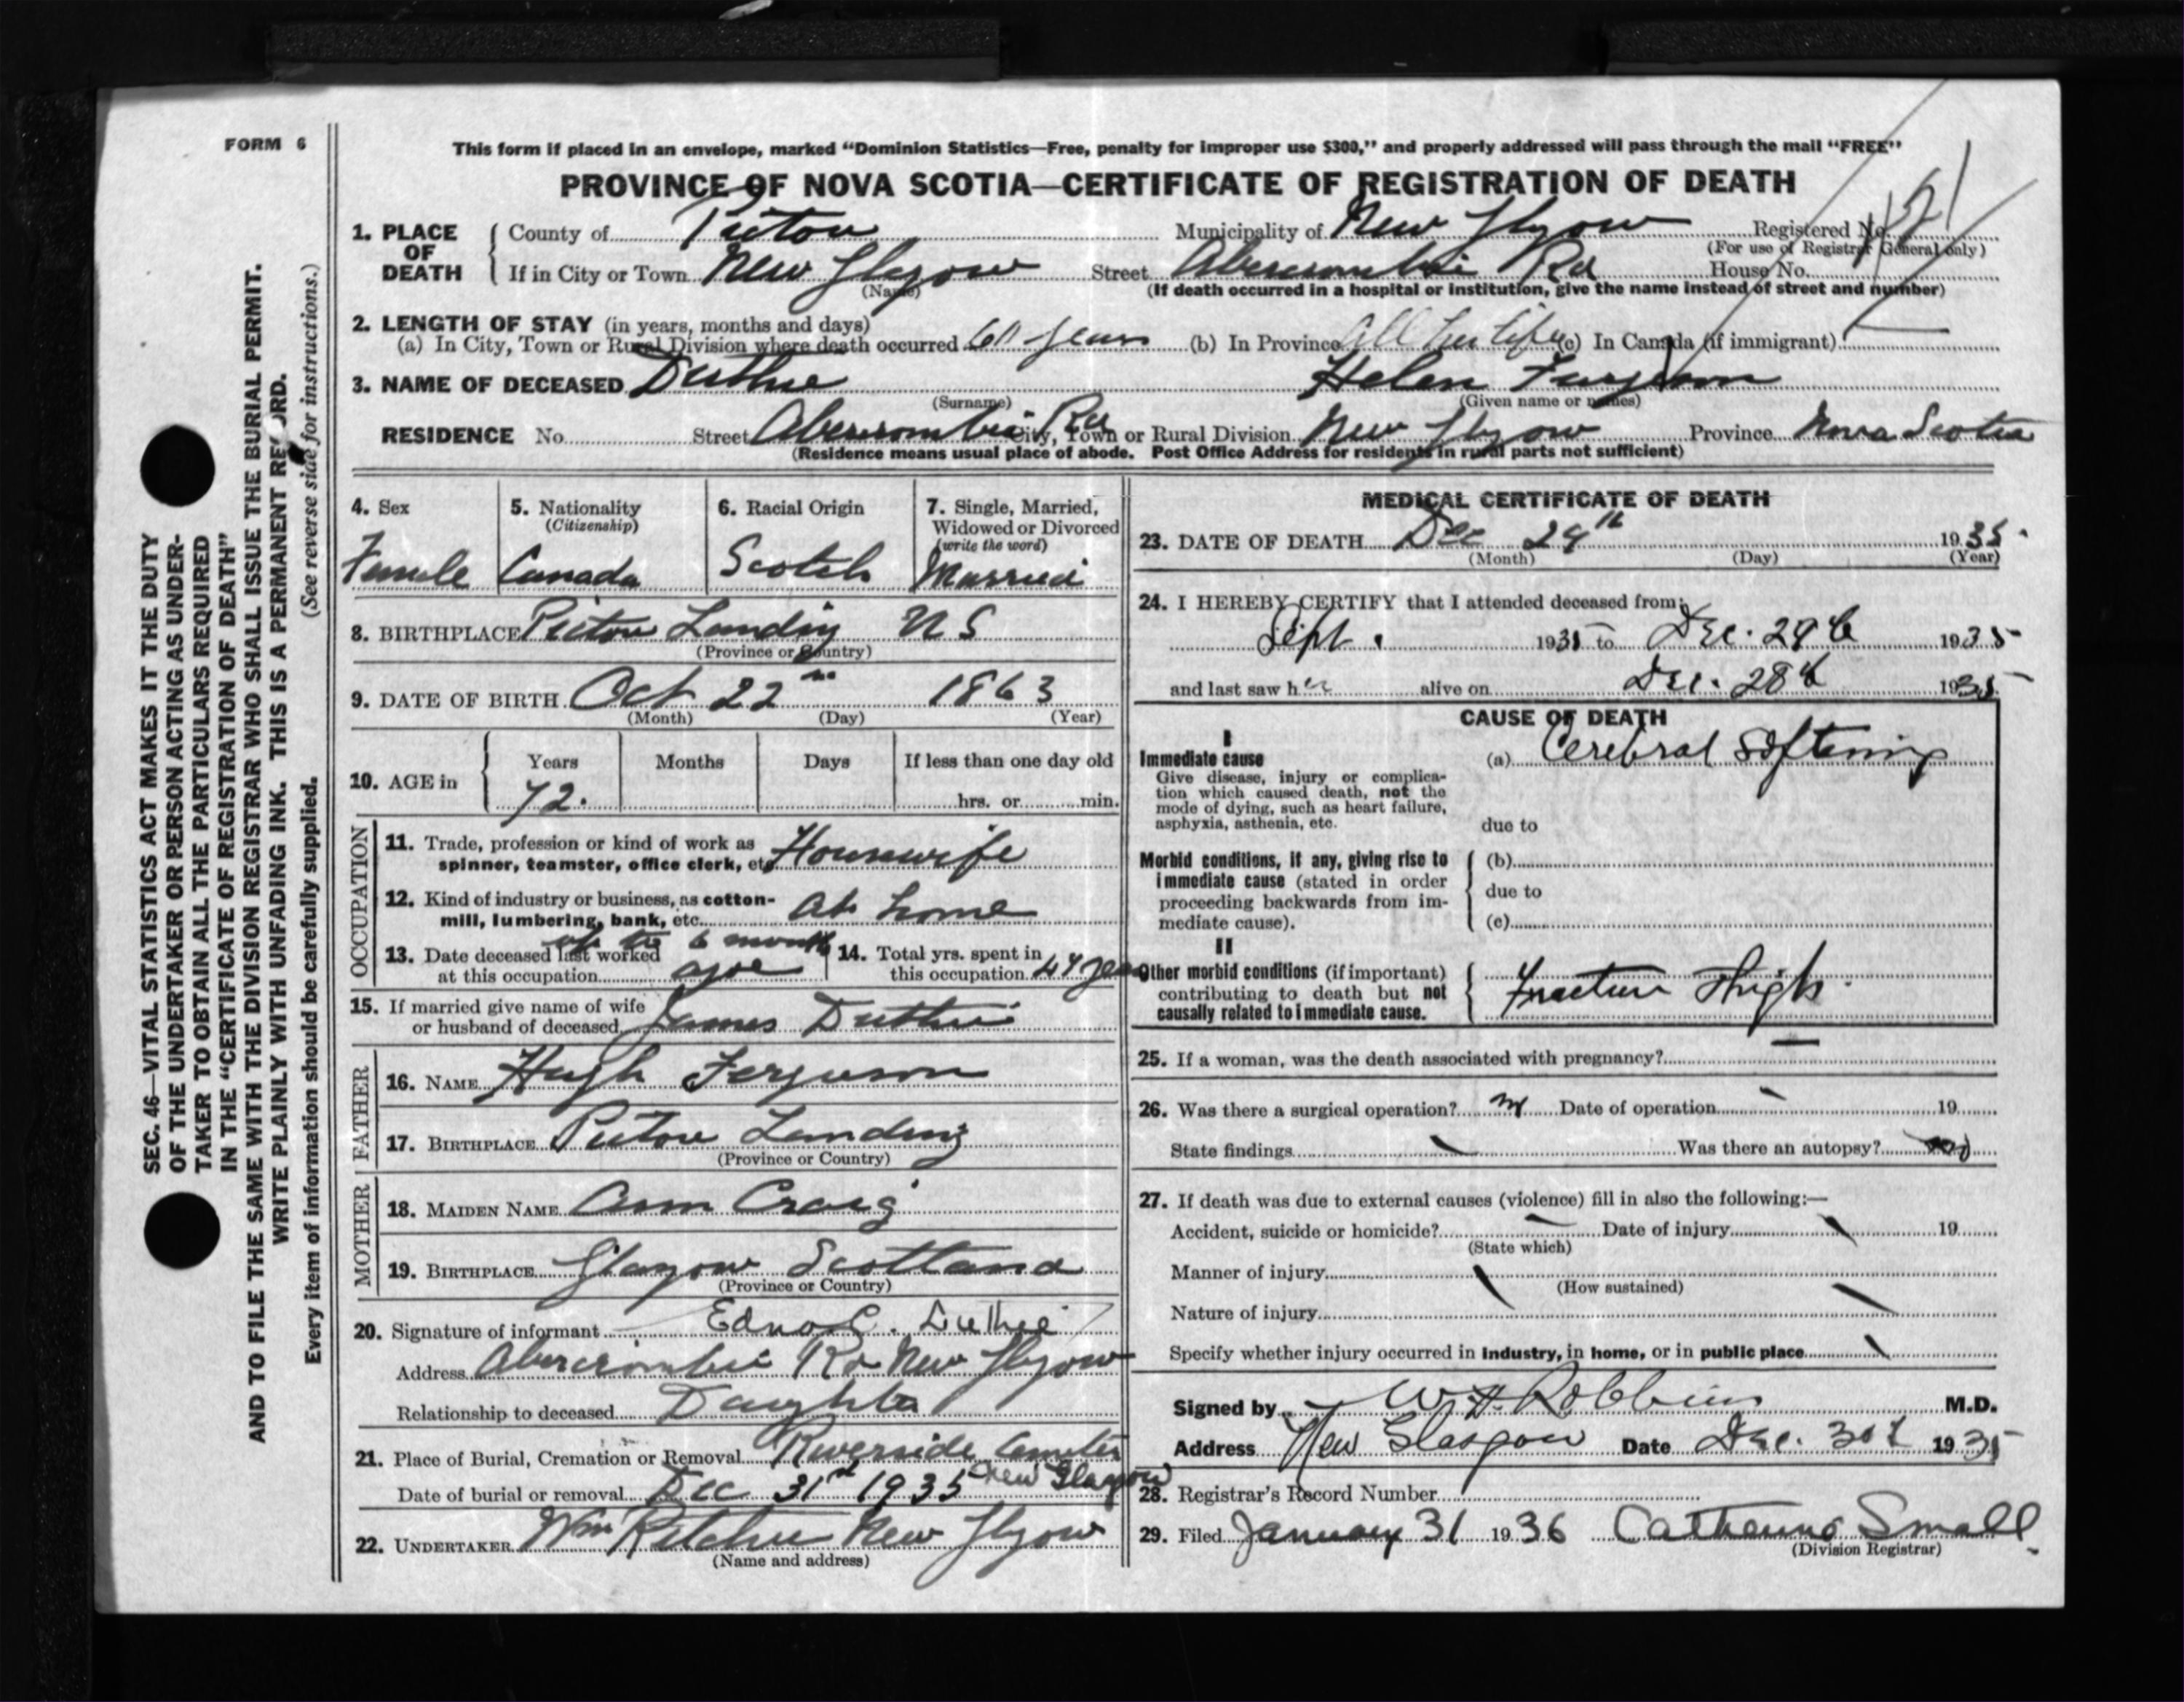 FORM 6
This form if placed in an envelope, marked “Dominion Statistics—Free, penalty for improper use $300,” and properly addressed will pass through the mail “FREE”
PROVINCE OF NOVA SCOTIA—CERTIFICATE OF REGISTRATION OF DEATH
1. PLACE OF DEATH { County of Pictou Municipality of New Glasgow Registered No.
(For use of Registrar General only)
If in City or Town New Glasgow Street Abercrombie Rd House No.
(Name) (If death occurred in a hospital or institution, give the name instead of street and number)
2. LENGTH OF STAY (in years, months and days)
(a) In City, Town or Rural Division where death occurred 60 years (b) In Province All her life (c) In Canada (if immigrant)
3. NAME OF DECEASED Duthie Helen Ferguson
(Surname) (Given name or names)
RESIDENCE No. Street Abercrombie Rd City, Town or Rural Division New Glasgow Province Nova Scotia
(Residence means usual place of abode. Post Office Address for residents in rural parts not sufficient)
4. Sex Female
5. Nationality (Citizenship) Canada
6. Racial Origin Scotch
7. Single, Married, Widowed or Divorced (write the word) Married
8. BIRTHPLACE Pictou Landing N S
(Province or Country)
9. DATE OF BIRTH Oct 22nd 1863
(Month) (Day) (Year)
10. AGE in { Years Months Days If less than one day old
72. hrs. or min.
OCCUPATION
11. Trade, profession or kind of work as
spinner, teamster, office clerk, etc. Housewife
12. Kind of industry or business, as cotton-
mill, lumbering, bank, etc. At home
13. Date deceased last worked
at this occupation up to 6 months ago
14. Total yrs. spent in
this occupation 44 years
15. If married give name of wife
or husband of deceased James Duthie
FATHER
16. NAME Hugh Ferguson
17. BIRTHPLACE Pictou Landing
(Province or Country)
MOTHER
18. MAIDEN NAME Ann Craig
19. BIRTHPLACE Glasgow Scotland
(Province or Country)
20. Signature of informant Edna C. Duthie
Address Abercrombie Rd New Glasgow
Relationship to deceased Daughter
21. Place of Burial, Cremation or Removal Riverside Cemetery
New Glasgow
Date of burial or removal Dec 31st 1935
22. UNDERTAKER Wm Ritchie New Glasgow
(Name and address)
MEDICAL CERTIFICATE OF DEATH
23. DATE OF DEATH Dec 29th 1935.
(Month) (Day) (Year)
24. I HEREBY CERTIFY that I attended deceased from:
Sept. 1935 to Dec. 29th 1935
and last saw her alive on Dec. 28th 1935
CAUSE OF DEATH
I
Immediate cause (a) Cerebral Softening
Give disease, injury or complica-
tion which caused death, not the
mode of dying, such as heart failure,
asphyxia, asthenia, etc.
due to
Morbid conditions, if any, giving rise to (b)
immediate cause (stated in order due to
proceeding backwards from im-
mediate cause). (c)
II
Other morbid conditions (if important)
contributing to death but not
causally related to immediate cause. Fracture Thigh.
25. If a woman, was the death associated with pregnancy? —
26. Was there a surgical operation? no Date of operation 19
State findings Was there an autopsy? no
27. If death was due to external causes (violence) fill in also the following:—
Accident, suicide or homicide? Date of injury 19
(State which)
Manner of injury
(How sustained)
Nature of injury
Specify whether injury occurred in industry, in home, or in public place
Signed by W. H. Robbins M.D.
Address New Glasgow Date Dec. 30th 1935
28. Registrar's Record Number
29. Filed January 31 1936 Catherine Small.
(Division Registrar)
SEC. 46—VITAL STATISTICS ACT MAKES IT THE DUTY
OF THE UNDERTAKER OR PERSON ACTING AS UNDER-
TAKER TO OBTAIN ALL THE PARTICULARS REQUIRED
IN THE “CERTIFICATE OF REGISTRATION OF DEATH”
AND TO FILE THE SAME WITH THE DIVISION REGISTRAR WHO SHALL ISSUE THE BURIAL PERMIT.
WRITE PLAINLY WITH UNFADING INK. THIS IS A PERMANENT RECORD.
Every item of information should be carefully supplied. (See reverse side for instructions.)